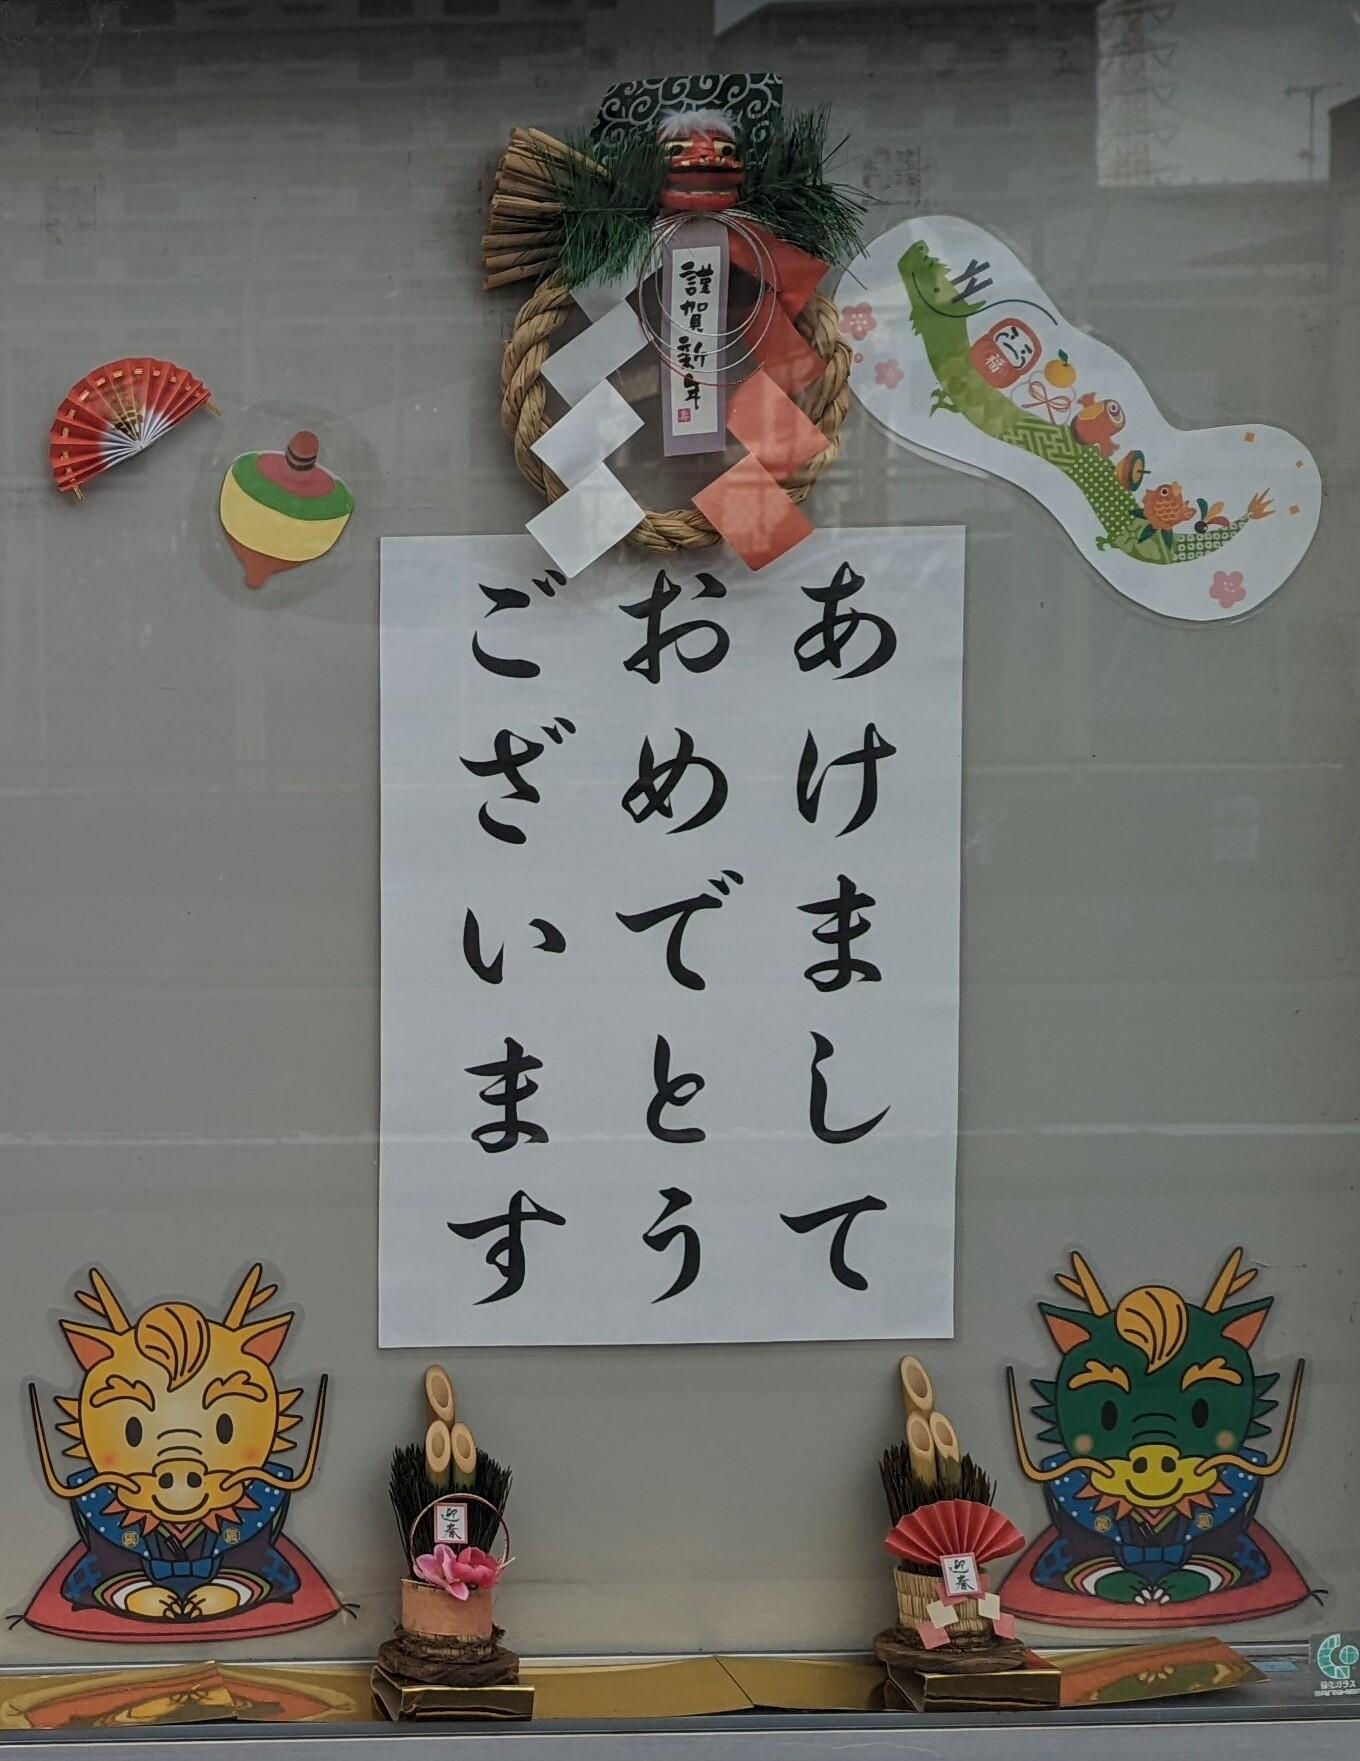 謹賀新年
福
あけまして
おめでとう
ございます
迎春
迎春
強化ガラス